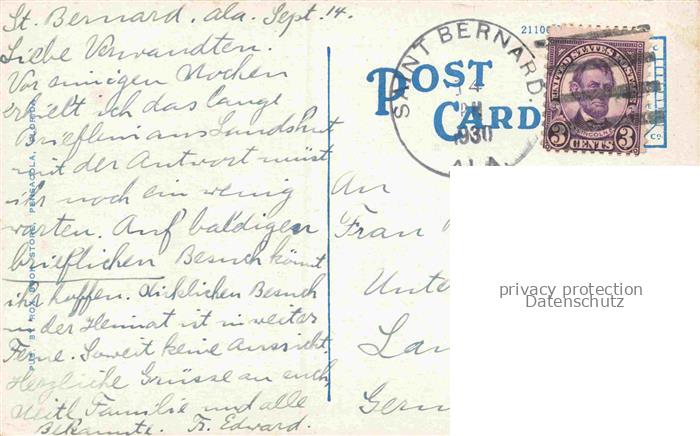 St. Bernard, Ala. Sept. 14.
Liebe Verwandten.
Vor einigen Wochen
erhielt ich das lange
Brieflein aus Landshut
mit der Antwort müsst
ihr noch ein wenig
warten. Auf baldigen
brieflichen Besuch könnt
ihr hoffen. Wirklichen Besuch
in der Heimat ist in weiter
Ferne. Soweit keine Aussicht.
Herzliche Grüsse an euch,
Familie und alle
Bekannte. Fr. Edward.
PUB. BY ROX BOOK STORE, PENSACOLA, FLORIDA.
POST
CARD
SAINT BERNARD
14
1930
ALA.
UNITED STATES POSTAGE
LINCOLN
3 CENTS 3
An
Frau
Unte
Lan
Germ
privacy protection
Datenschutz